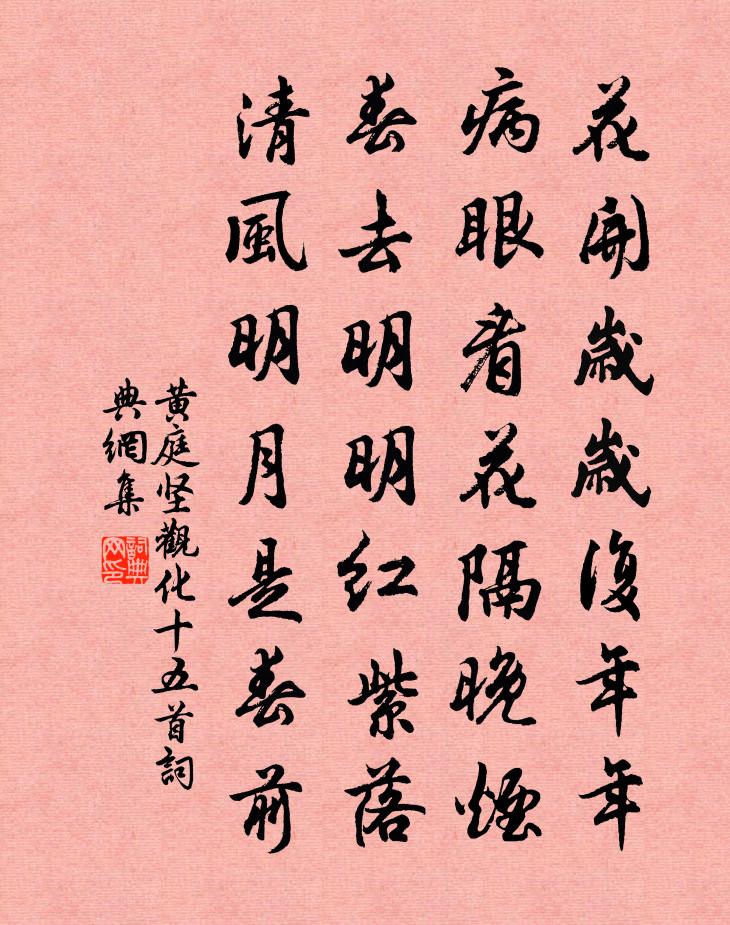 花開歲歲復年年
病眼看花隔晚煙
春去明明紅紫落
清風明月是春前
黄庭坚觀化十五首詞
典網集
詞典
网印